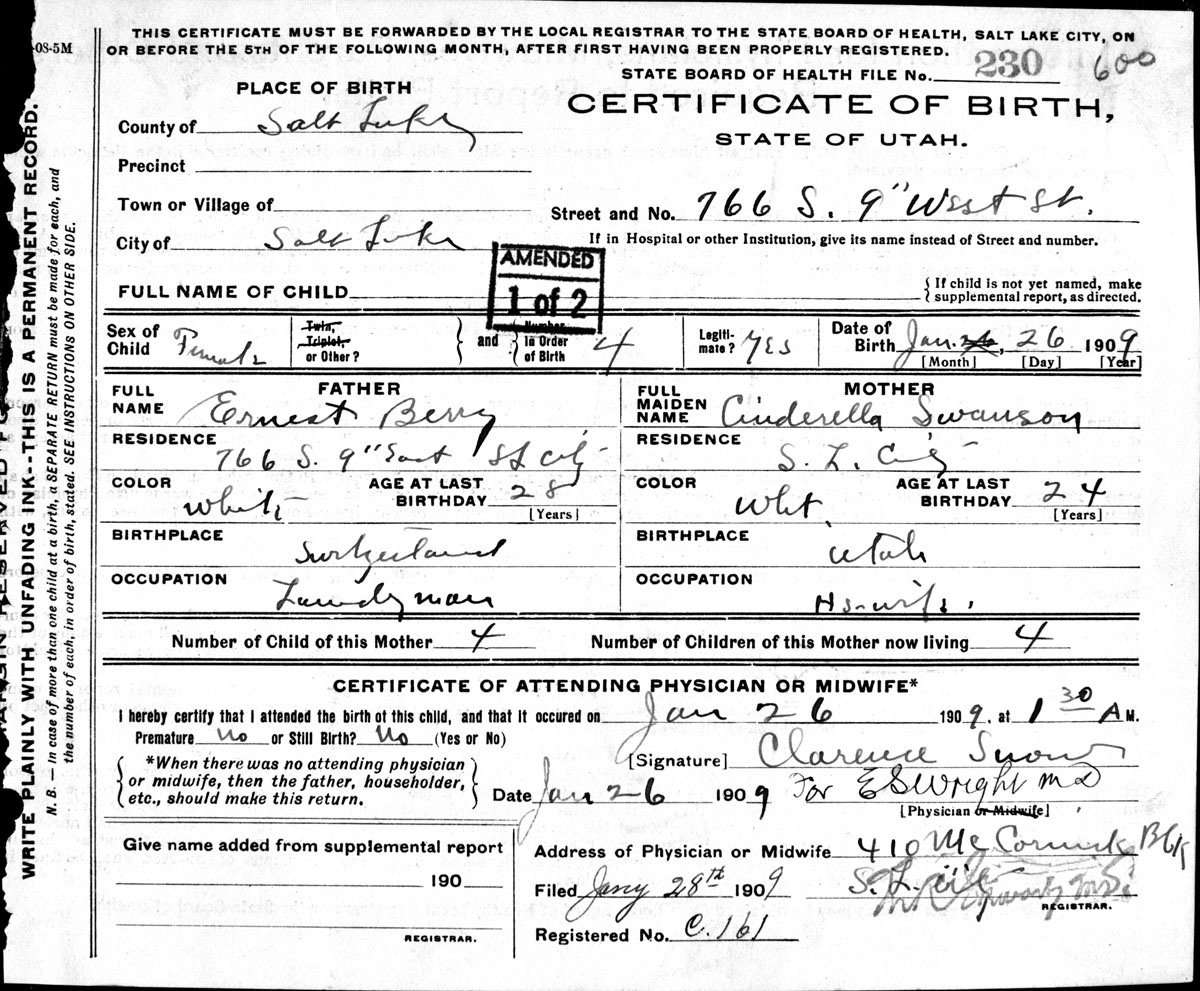 THIS CERTIFICATE MUST BE FORWARDED BY THE LOCAL REGISTRAR TO THE STATE BOARD OF HEALTH, SALT LAKE CITY, ON
OR BEFORE THE 5TH OF THE FOLLOWING MONTH, AFTER FIRST HAVING BEEN PROPERLY REGISTERED.
-08-5M
STATE BOARD OF HEALTH FILE No. 230 600
PLACE OF BIRTH
CERTIFICATE OF BIRTH,
STATE OF UTAH.
County of Salt Lake
Precinct
Town or Village of
Street and No. 766 S. 9" West St.
City of Salt Lake
If in Hospital or other Institution, give its name instead of Street and number.
AMENDED
1 of 2
FULL NAME OF CHILD
{ If child is not yet named, make
supplemental report, as directed.
Sex of Child Female
Twin, Triplet, or Other?
} and { Number in Order of Birth 4
Legitimate? Yes
Date of Birth Jan. 26, 26 1909
[Month] [Day] [Year]
FATHER
FULL NAME Ernest Berry
RESIDENCE
766 S. 9" East S L City
COLOR White
AGE AT LAST BIRTHDAY 28
[Years]
BIRTHPLACE
Switzerland
OCCUPATION
Laundryman
MOTHER
FULL MAIDEN NAME Cinderella Swanson
RESIDENCE
S. L. City
COLOR Wht.
AGE AT LAST BIRTHDAY 24
[Years]
BIRTHPLACE
Utah
OCCUPATION
Hs-wife.
Number of Child of this Mother 4 Number of Children of this Mother now living 4
CERTIFICATE OF ATTENDING PHYSICIAN OR MIDWIFE*
I hereby certify that I attended the birth of this child, and that it occured on Jan 26 1909, at 1 30 A M.
Premature No or Still Birth? No (Yes or No)
{ *When there was no attending physician
or midwife, then the father, householder,
etc., should make this return. }
[Signature] Clarence Snow
Date Jan 26 1909 For E S Wright M D
[Physician or Midwife]
Give name added from supplemental report
190
REGISTRAR.
Address of Physician or Midwife 410 McCornick Blk
S. L. City
Filed Jany 28th 1909
REGISTRAR.
Registered No. C.161
WRITE PLAINLY WITH UNFADING INK--THIS IS A PERMANENT RECORD.
N. B. — In case of more than one child at a birth, a SEPARATE RETURN must be made for each, and
the number of each, in order of birth, stated. SEE INSTRUCTIONS ON OTHER SIDE.